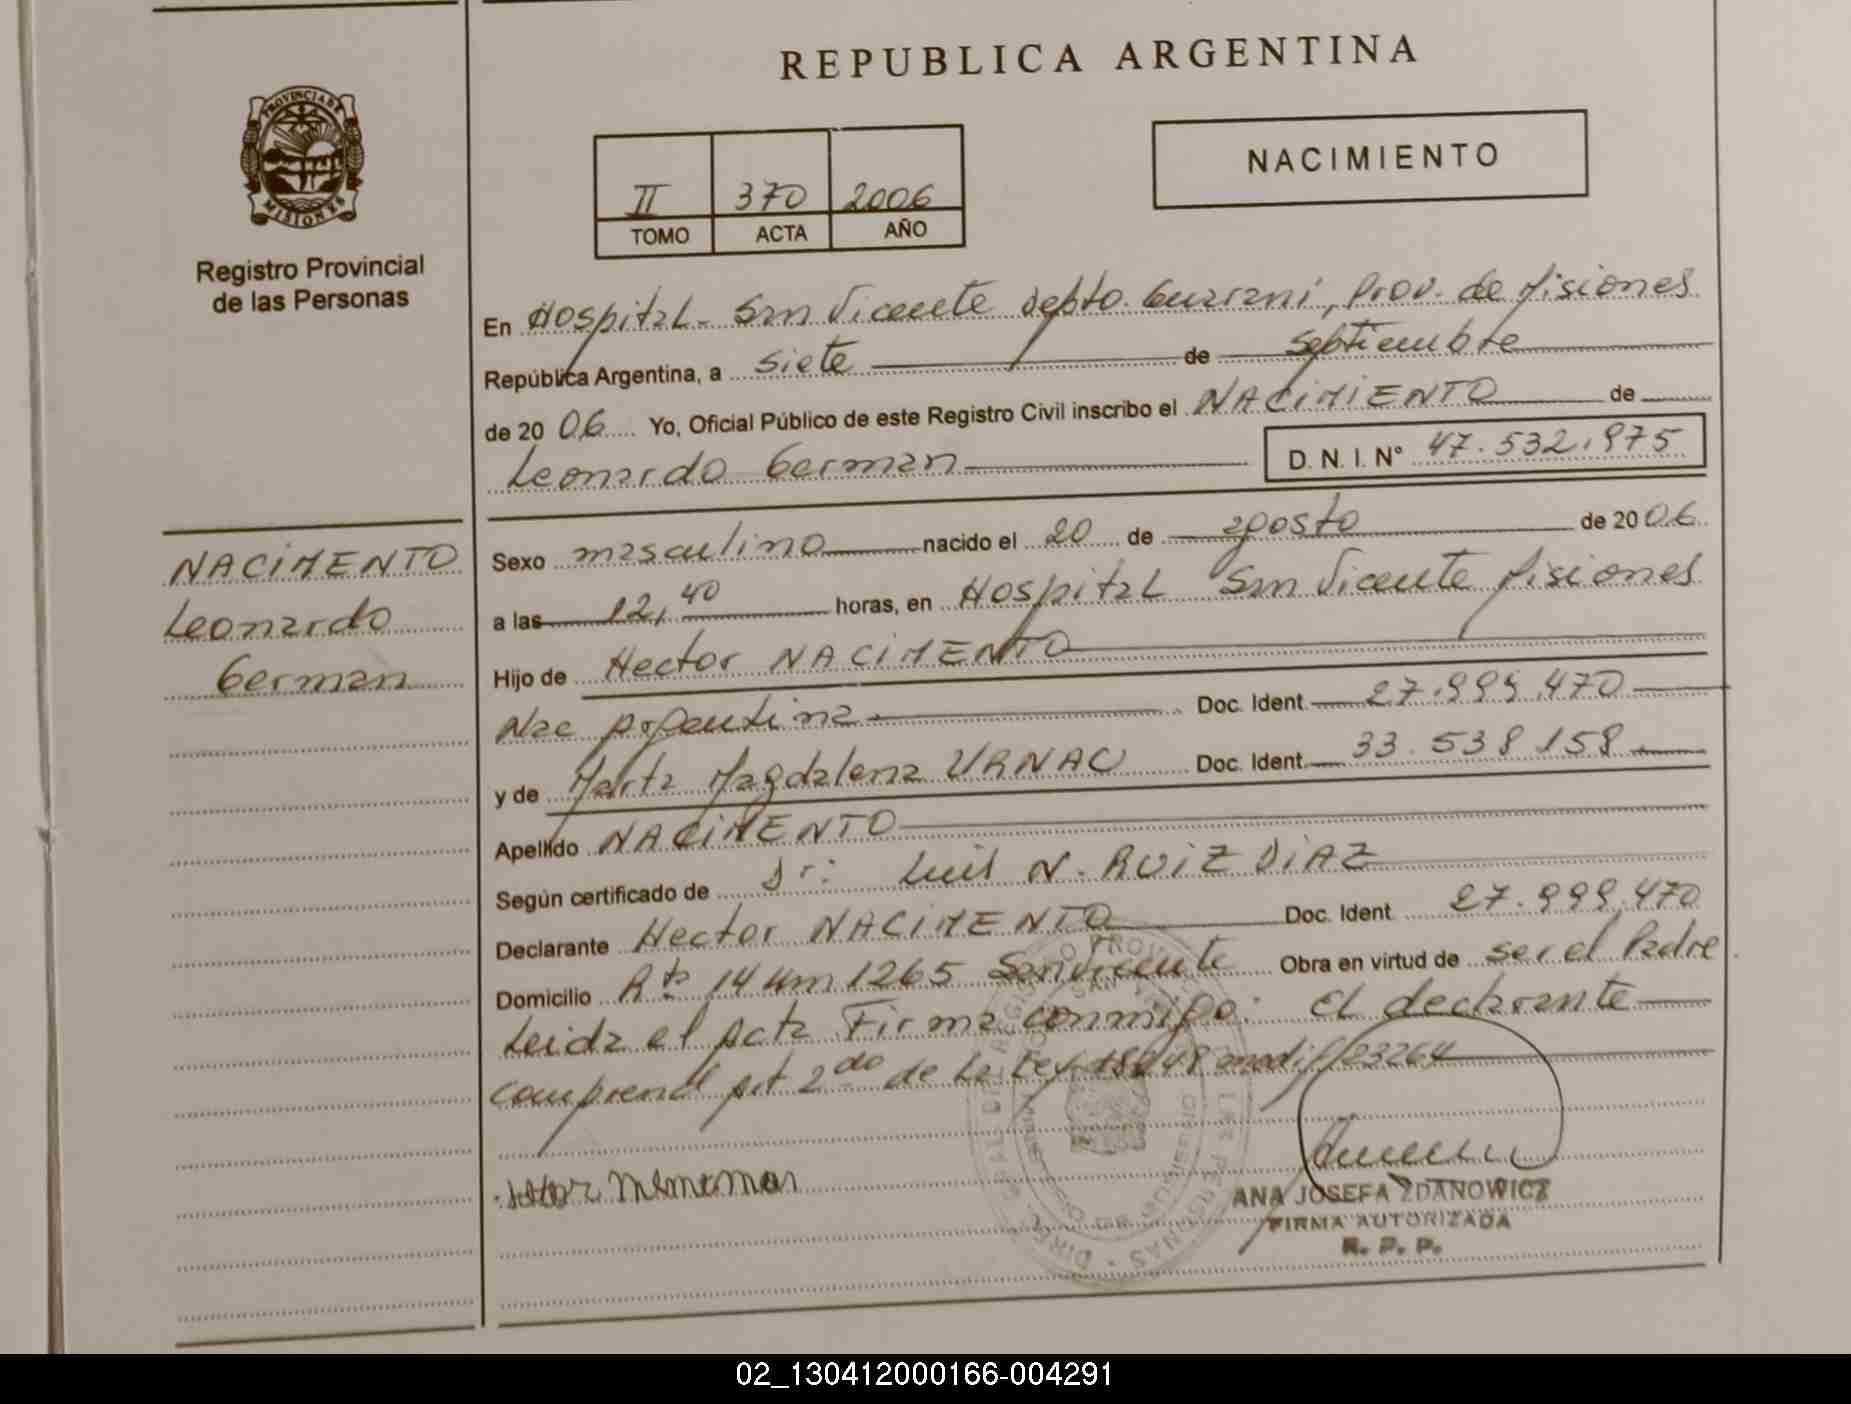 REPUBLICA ARGENTINA
PROVINCIA DE
MISIONES
Registro Provincial
de las Personas
NACIMIENTO
II 370 2006
TOMO ACTA AÑO
En Hospital - San Vicente Depto. Guarani, Prov. de Misiones
República Argentina, a siete de septiembre
de 2006 Yo, Oficial Público de este Registro Civil inscribo el NACIMIENTO de
Leonardo German D. N. I. N° 47.532.975
NACIMENTO
Leonardo
German
Sexo masculino nacido el 20 de agosto de 2006
a las 12,40 horas, en Hospital San Vicente Misiones
Hijo de Hector NACIMENTO
Nac Argentina Doc. Ident. 27.999.470
y de Marta Magdalena URNAU Doc. Ident. 33.538.158
Apellido NACIMENTO
Según certificado de Dr: Luis N. RUIZ DIAZ
Declarante Hector NACIMENTO Doc. Ident. 27.999.470
Domicilio Rta 14 km 1265 San Vicente Obra en virtud de ser el Padre
Leida el Acta Firma conmigo: El declarante
comprend Art 2do de la Ley 18248 modif 23264
ANA JOSEFA ZDANOWICZ
FIRMA AUTORIZADA
R. P. P.
02_130412000166-004291